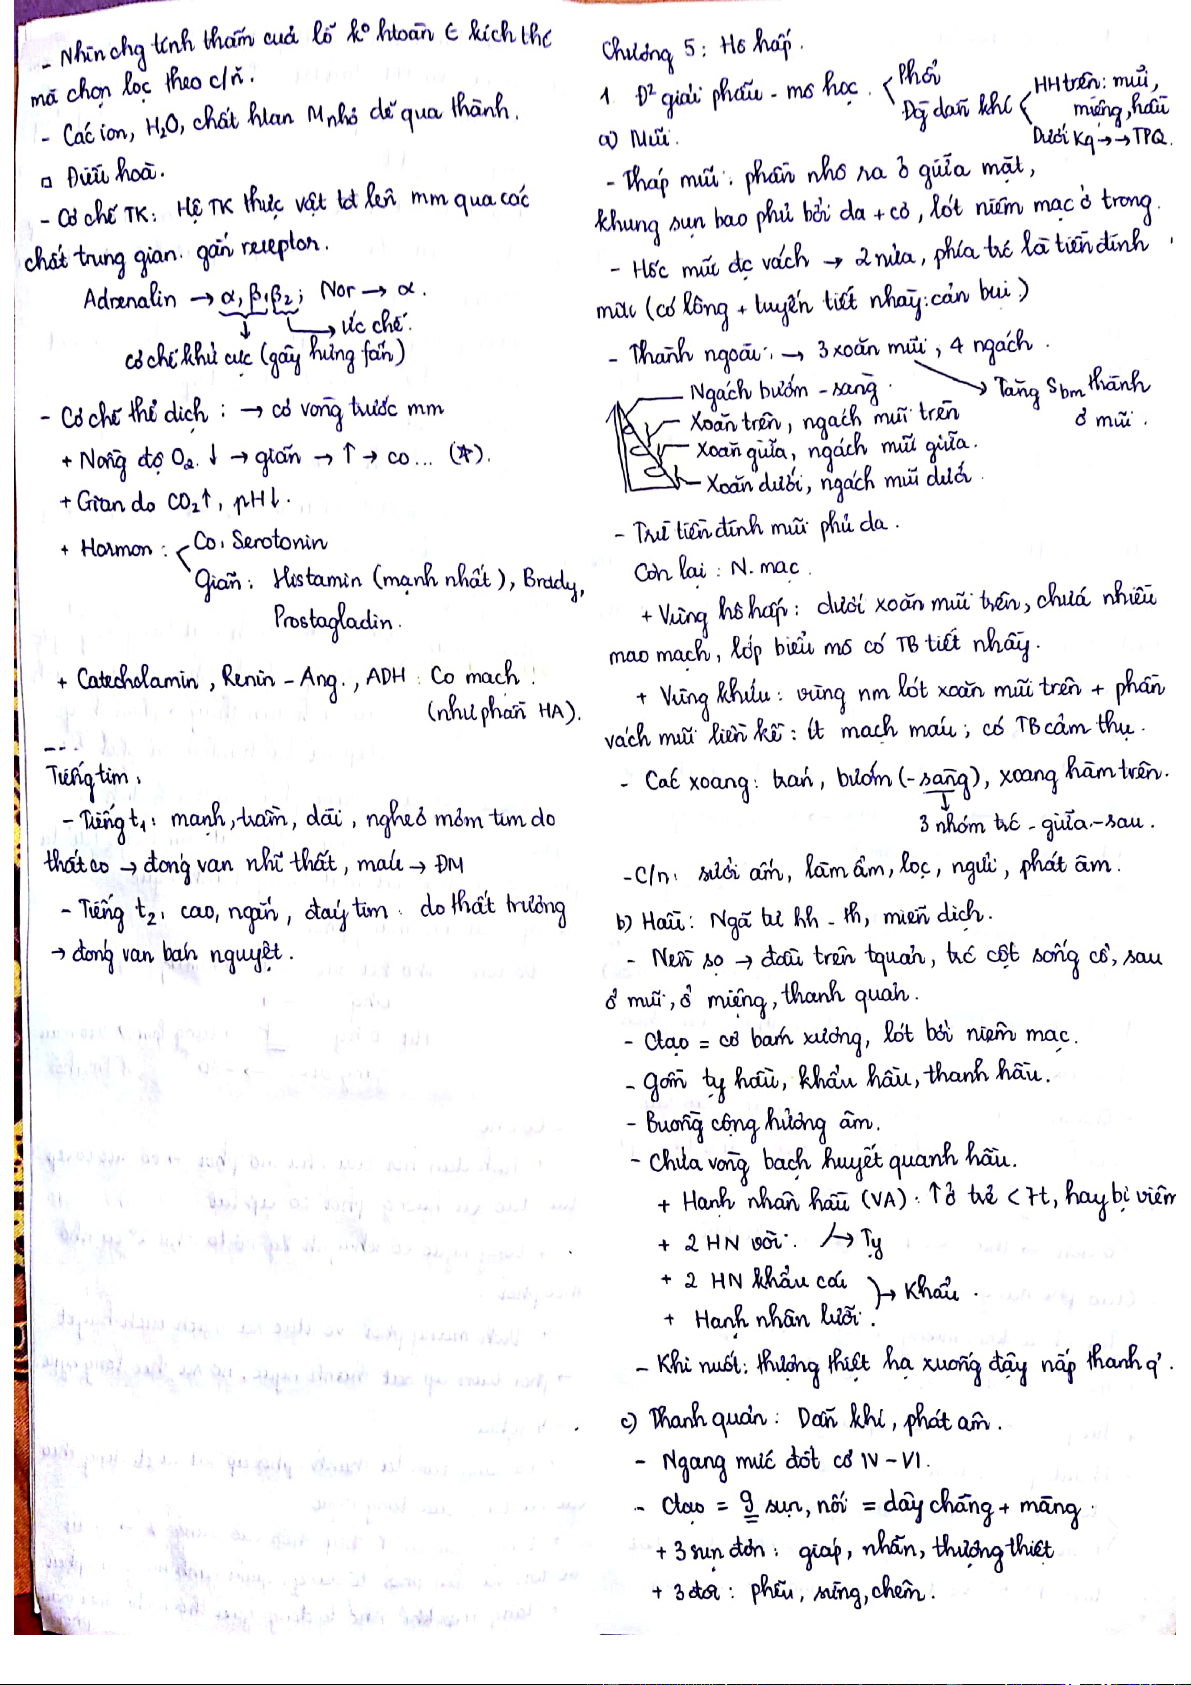 - Nhìn chg tính thấm của lỗ k° htoàn ∈ kích thc
mà chọn lọc theo c/n.
- Các ion, H₂O, chất htan M nhỏ dễ qua thành.
□ Điều hoà.
- Cơ chế TK: Hệ TK thực vật tđ lên mm qua các
chất trung gian gắn receptor.
Adrenalin → α, β₁, β₂; Nor → α.
↓ → ức chế.
cơ chế khử cực (gây hưng fấn)
- Cơ chế thể dịch: → cơ vòng trước mm
+ Nồng độ O₂ ↓ → giãn → ↑ → co... (*).
+ Giãn do CO₂↑, pH↓.
+ Hormon: Co: Serotonin
Giãn: Histamin (mạnh nhất), Brady,
Prostagladin.
+ Catecholamin, Renin - Ang., ADH: Co mạch.
(như phần HA).
---
Tiếng tim:
- Tiếng t₁: mạnh, trầm, dài, nghe ở mỏm tim do
thất co → đóng van nhĩ thất, máu → ĐM
- Tiếng t₂: cao, ngắn, đáy tim do thất trương
→ đóng van bán nguyệt.
Chương 5: Hô hấp.
1. Đ² giải phẫu - mô học. Phổi
Đg dẫn khí HH trên: mũi,
miệng, hầu
Dưới Kq → → TPQ.
a) Mũi.
- Tháp mũi: phần nhô ra ở giữa mặt,
khung sụn bao phủ bởi da + cơ, lót niêm mạc ở trong.
- Hốc mũi đc vách → 2 nửa, phía trc là tiền đình
mũi (có lông + tuyến tiết nhày: cản bụi)
- Thành ngoài: → 3 xoăn mũi, 4 ngách.
→ Tăng Sbm thành
ở mũi.
Ngách bướm - sàng.
Xoăn trên, ngách mũi trên
Xoăn giữa, ngách mũi giữa.
Xoăn dưới, ngách mũi dưới.
- Trừ tiền đình mũi phủ da.
Còn lại: N. mạc.
+ Vùng hô hấp: dưới xoăn mũi trên, chứa nhiều
mao mạch, lớp biểu mô có TB tiết nhầy.
+ Vùng khứu: vùng nm lót xoăn mũi trên + phần
vách mũi liền kề: ít mạch máu; có TB cảm thụ.
- Các xoang: trán, bướm (- sàng), xoang hàm trên.
↓
3 nhóm trc - giữa - sau.
- C/n: sưởi ấm, làm ẩm, lọc, ngửi, phát âm.
b) Hầu: Ngã tư hh - th, miễn dịch.
- Nền sọ → đầu trên tquản, trc cột sống cổ, sau
ổ mũi, ổ miệng, thanh quản.
- Ctạo = cơ bám xương, lót bởi niêm mạc.
- Gồm tỵ hầu, khẩu hầu, thanh hầu.
- Buồng cộng hưởng âm.
- Chứa vòng bạch huyết quanh hầu.
+ Hạnh nhân hầu (VA): ↑ ở trẻ < 7t, hay bị viêm
+ 2 HN vòi. → Tỵ
+ 2 HN khẩu cái → Khẩu.
+ Hạnh nhân lưỡi.
- Khi nuốt: thượng thiệt hạ xuống đậy nắp thanh q'.
c) Thanh quản: Dẫn khí, phát âm.
- Ngang mức đốt cổ IV - VI.
- Ctạo = 9 sụn, nối = dây chằng + màng.
+ 3 sụn đơn: giáp, nhẫn, thượng thiệt
+ 3 đôi: phễu, sừng, chêm.